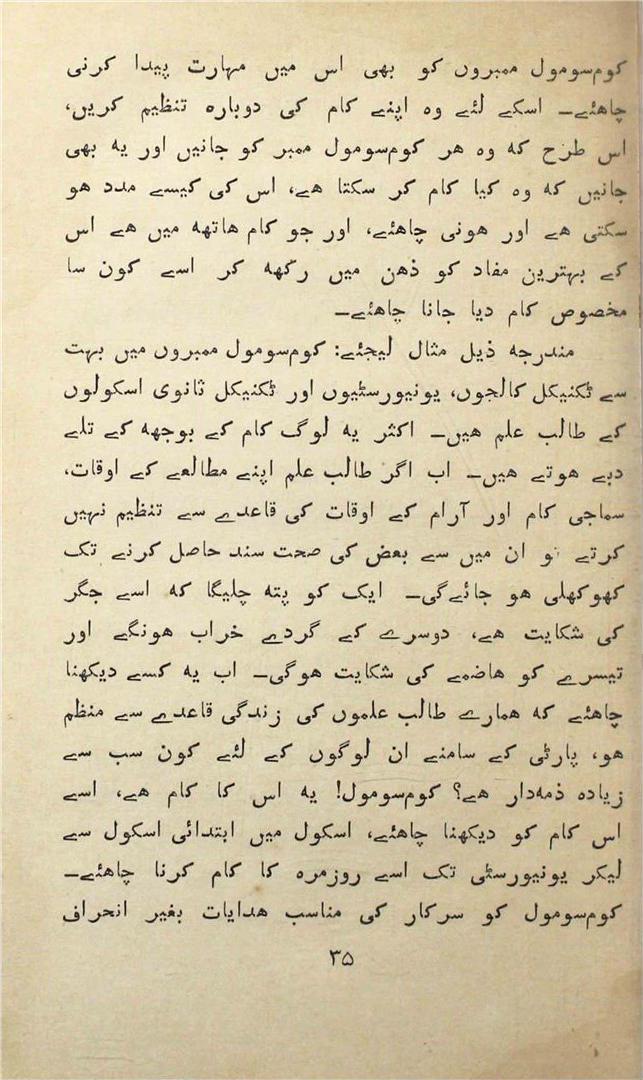 کوم‌سومول ممبروں کو بھی اس میں مہارت پیدا کرنی
چاہئے۔ اسکے لئے وہ اپنے کام کی دوبارہ تنظیم کریں،
اس طرح کہ وہ ہر کوم‌سومول ممبر کو جانیں اور یہ بھی
جانیں کہ وہ کیا کام کر سکتا ہے، اس کی کیسے مدد ہو
سکتی ہے اور ہونی چاہئے، اور جو کام ہاتھہ میں ہے اس
کے بہترین مفاد کو ذہن میں رکھہ کر اسے کون سا
مخصوص کام دیا جانا چاہئے۔
مندرجہ ذیل مثال لیجئے: کوم‌سومول ممبروں میں بہت
سے ٹکنیکل کالجوں، یونیورسٹیوں اور ٹکنیکل ثانوی اسکولوں
کے طالب علم ہیں۔ اکثر یہ لوگ کام کے بوجھہ کے تلے
دبے ہوتے ہیں۔ اب اگر طالب علم اپنے مطالعے کے اوقات،
سماجی کام اور آرام کے اوقات کی قاعدے سے تنظیم نہیں
کرتے تو ان میں سے بعض کی صحت سند حاصل کرنے تک
کھوکھلی ہو جائےگی۔ ایک کو پتہ چلیگا کہ اسے جگر
کی شکایت ہے، دوسرے کے گردے خراب ہونگے اور
تیسرے کو ہاضمے کی شکایت ہوگی۔ اب یہ کسے دیکھنا
چاہئے کہ ہمارے طالب علموں کی زندگی قاعدے سے منظم
ہو، پارٹی کے سامنے ان لوگوں کے لئے کون سب سے
زیادہ ذمہ‌دار ہے؟ کوم‌سومول! یہ اس کا کام ہے، اسے
اس کام کو دیکھنا چاہئے، اسکول میں ابتدائی اسکول سے
لیکر یونیورسٹی تک اسے روزمرہ کا کام کرنا چاہئے۔
کوم‌سومول کو سرکار کی مناسب ہدایات بغیر انحراف
۳۵